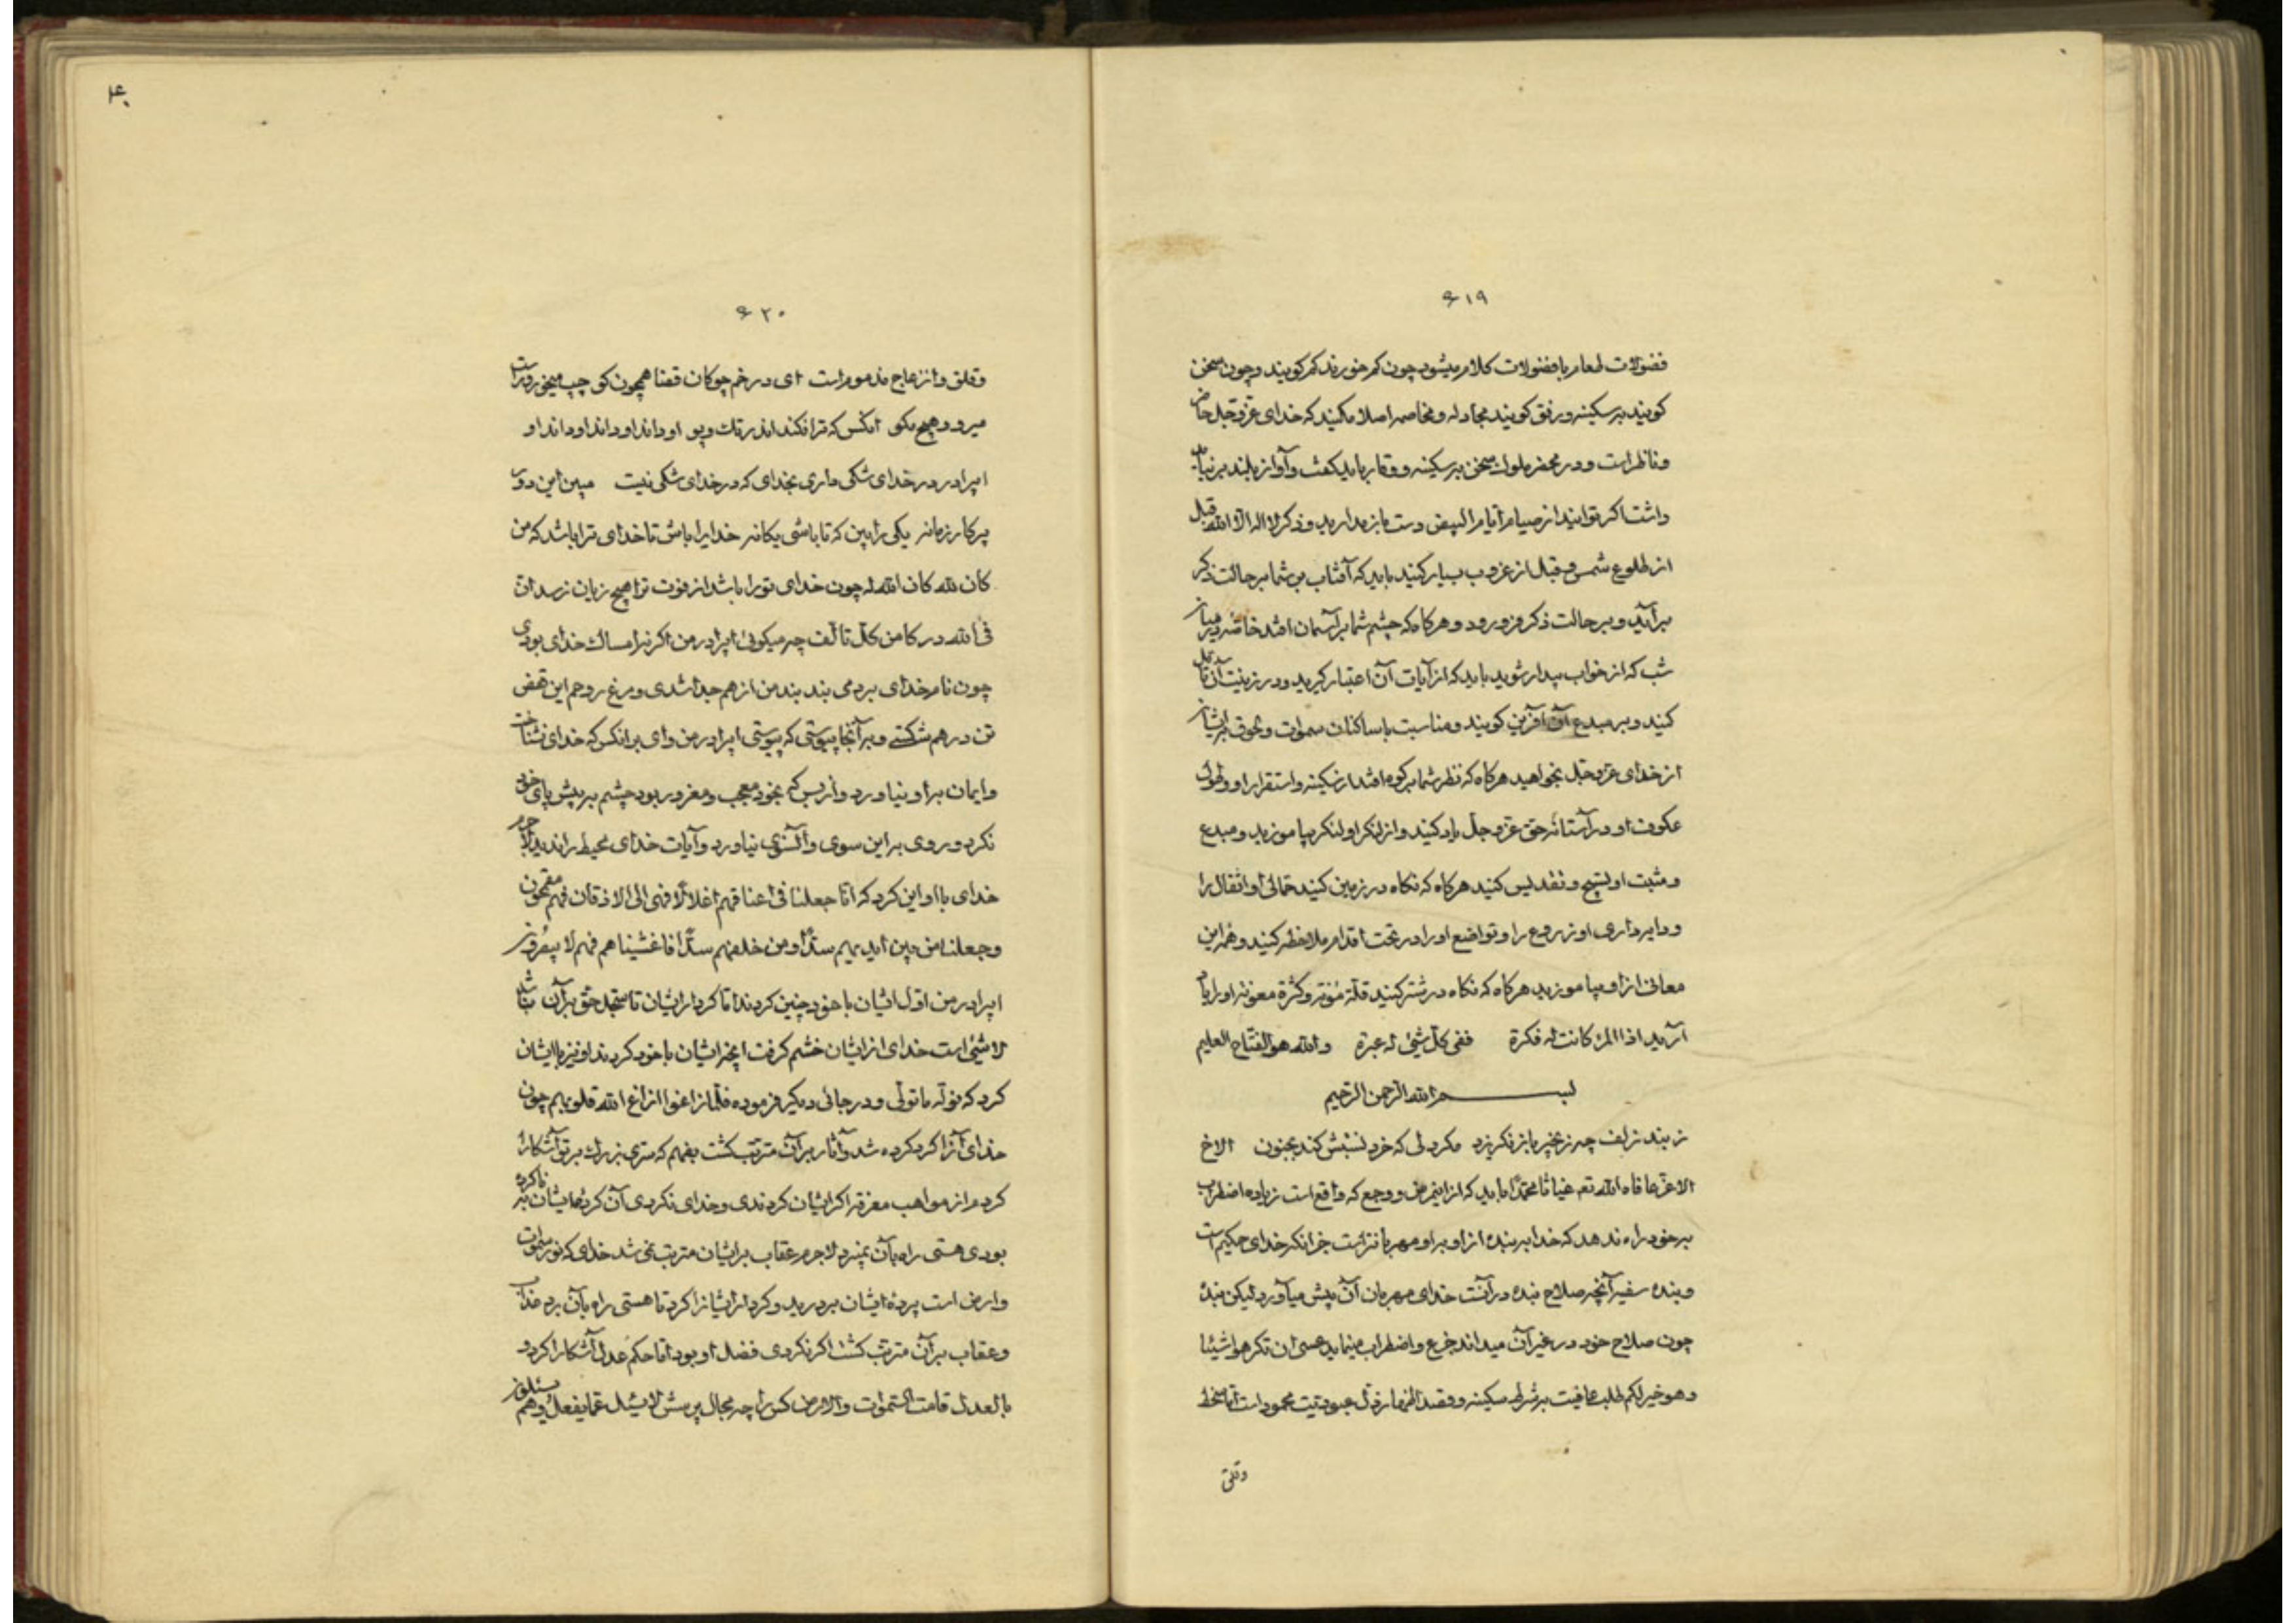 ۶۱۹
فضولات طعام با فضولات کلام میشود چون کم خورند کم کویند و چون سخن
کویند بر سکینه و رفق کویند مجادله و مخاصمه اصلا مکنید که خدای عزّ و جلّ حاضر
و ناظر است و در محضر ملوک سخن بر سکینه و وقار باید کفت و آواز بلند بر نباید
داشت اکر توانید از صیام ایّام البیض دست باز مدارید و ذکر لا اله الّا الله قبل
از طلوع شمس و قبل از غروب بسیار کنید باید که آفتاب بر شما بر حالت ذکر
برآید و بر حالت ذکر فرو رود و هر کاه که چشم شما بر آسمان افتد خاصّه در میان
شب که از خواب بیدار شوید باید که از آیات آن اعتبار کیرید و در زینت آن تأمّل
کنید و بر مبدع آن آفرین کویند و مناسبت با ساکنان سموات و لحوق بر ایشان
از خدای عزّ و جلّ بخواهید هر کاه که نظر شما بر کوه افتد از سکینه و استقرار او و طول
عکوف او در آستانه حق عزّ و جلّ یاد کنید و از لنکر او لنکر بیاموزید و مبدع
و مثبت او تسبیح و تقدیس کنید هر کاه که نکاه در زمین کنید حمّالی او اثقال را
و دایه داری او زروع را و تواضع او را در تحت اقدام ملاحظه کنید و همه این
معانی از او بیاموزید هر کاه که نکاه در شتر کنید قلّة مؤنته و کثرة معونته او را یاد
آرید اذا المرء کانت له فکرة ففی کلّ شیئ له عبرة والله هو الفتّاح العلیم
بسم الله الرّحمن الرّحیم
ز بند زلف چه زنجیر باز نکریزد مکر دلی که خرد نسبتش کند بجنون الاخ
الاعزّ عافاه الله تعـ غیاثا محمّدا باید که از اینمرض و وجع که واقع است زیاده اضطراب
بر خود راه ندهد که خدا بر بندهٔ از او بر او مهربانتر است جز آنکه خدای حکیم است
و بنده سفیه آنچه صلاح بنده در آنست خدای مهربان آن پیش میآورد لیکن بندهٔ
چون صلاح خود در غیر آن میداند جزع و اضطراب مینماید عسی ان تکرهوا شیئا
و هو خیر لکم طلب عافیت بر شرط سکینه و قصد اظهار ذلّ عبودیّت محمود است امّا سخط
وقلق
۴۰
۶۲۰
و قلق و انزعاج مذموم است ای در خم چوکان قضا همچون کو چپ میخور و راست
میرو و هیچ مکو انکس که ترا فکند اندر تک و پو او داند او داند او داند او
ایبرادر در خدای شکی داری بخدای که در خدای شکی نیست مبین این دور
پرکار زمانه یکی را بین که تا باشی یکانه خدایرا باش تا خدای ترا باشد که من
کان لله کان الله له چون خدای تو را باشد از فوت ترا هیچ زیان نرسد انّ
فی الله درکا من کلّ تالف چه میکوئی ایبرادر من اکر نه امساک خدای بودی
چون نام خدای بردمی بند بند من از هم جدا شدی و مرغ روحم این قفص
تن در هم شکستی و بر آنجا پیوستی که پیوستی ایبرادر من وای بر انکس که خدای نشناخت
و ایمان بر او نیاورد و از بس که بخود معجب و مغرور بود چشم بر پیش پای خود
نکرد و روی بر این سوی و آنسوی نیاورد و آیات خدای محیط را ندید لاجرم
خدای با او این کرد که انّا جعلنا فی اعناقهم اغلالًا فهی الی الاذقان فهم مقمحون
و جعلنا من بین ایدیهم سدًّا و من خلفهم سدًّا فاغشیناهم فهم لا یبصرون
ایبرادر من اوّل ایشان با خود چنین کردند امّا کردار ایشان تا سجّد حق بر آن نباشد
لا شیئ است خدای از ایشان خشم کرفت آنچه ایشان با خود کردند او نیز با ایشان
کرد که نولّه ما تولّی و در جائی دیکر فرموده فلمّا زاغوا ازاغ الله قلوبهم چون
خدای آنرا کرد کرده شد و آثار بر آن مترتّب کشت بفهم که سرّی بزرک بر تو آشکارا
کردم از مواهب معرفة اکر ایشان کردندی و خدای نکردی آن کردهٔ ایشان ناکرده
بودی هستی راه بآن نمیبرد لاجرم عقاب بر ایشان مترتّب نمی شد خدای که نور سموات
و ارض است پردهٔ ایشان بردرید و کردار ایشانرا کرد تا هستی راه بآن برد عذاب
و عقاب بر آن مترتّب کشت اکر نکردی فضل او بود امّا حکم عدل آشکارا کردد
بالعدل قامت السّموات و الارض کس را چه مجال پرسش لا یسئل عمّا یفعل و هم یسئلون